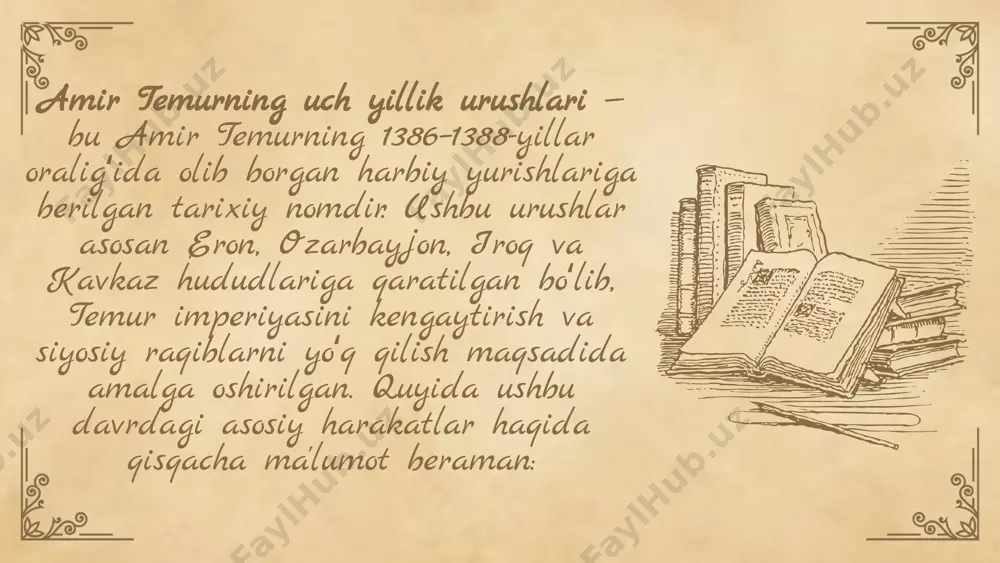 Amir Temurning uch yillik urushlari –
bu Amir Temurning 1386–1388-yillar
oralig‘ida olib borgan harbiy yurishlariga
berilgan tarixiy nomdir. Ushbu urushlar
asosan Eron, Ozarbayjon, Iroq va
Kavkaz hududlariga qaratilgan bo‘lib,
Temur imperiyasini kengaytirish va
siyosiy raqiblarni yo‘q qilish maqsadida
amalga oshirilgan. Quyida ushbu
davrdagi asosiy harakatlar haqida
qisqacha ma’lumot beraman:
FaylHub.uz
FaylHub.uz
FaylHub.uz
FaylHub.uz
FaylHub.uz